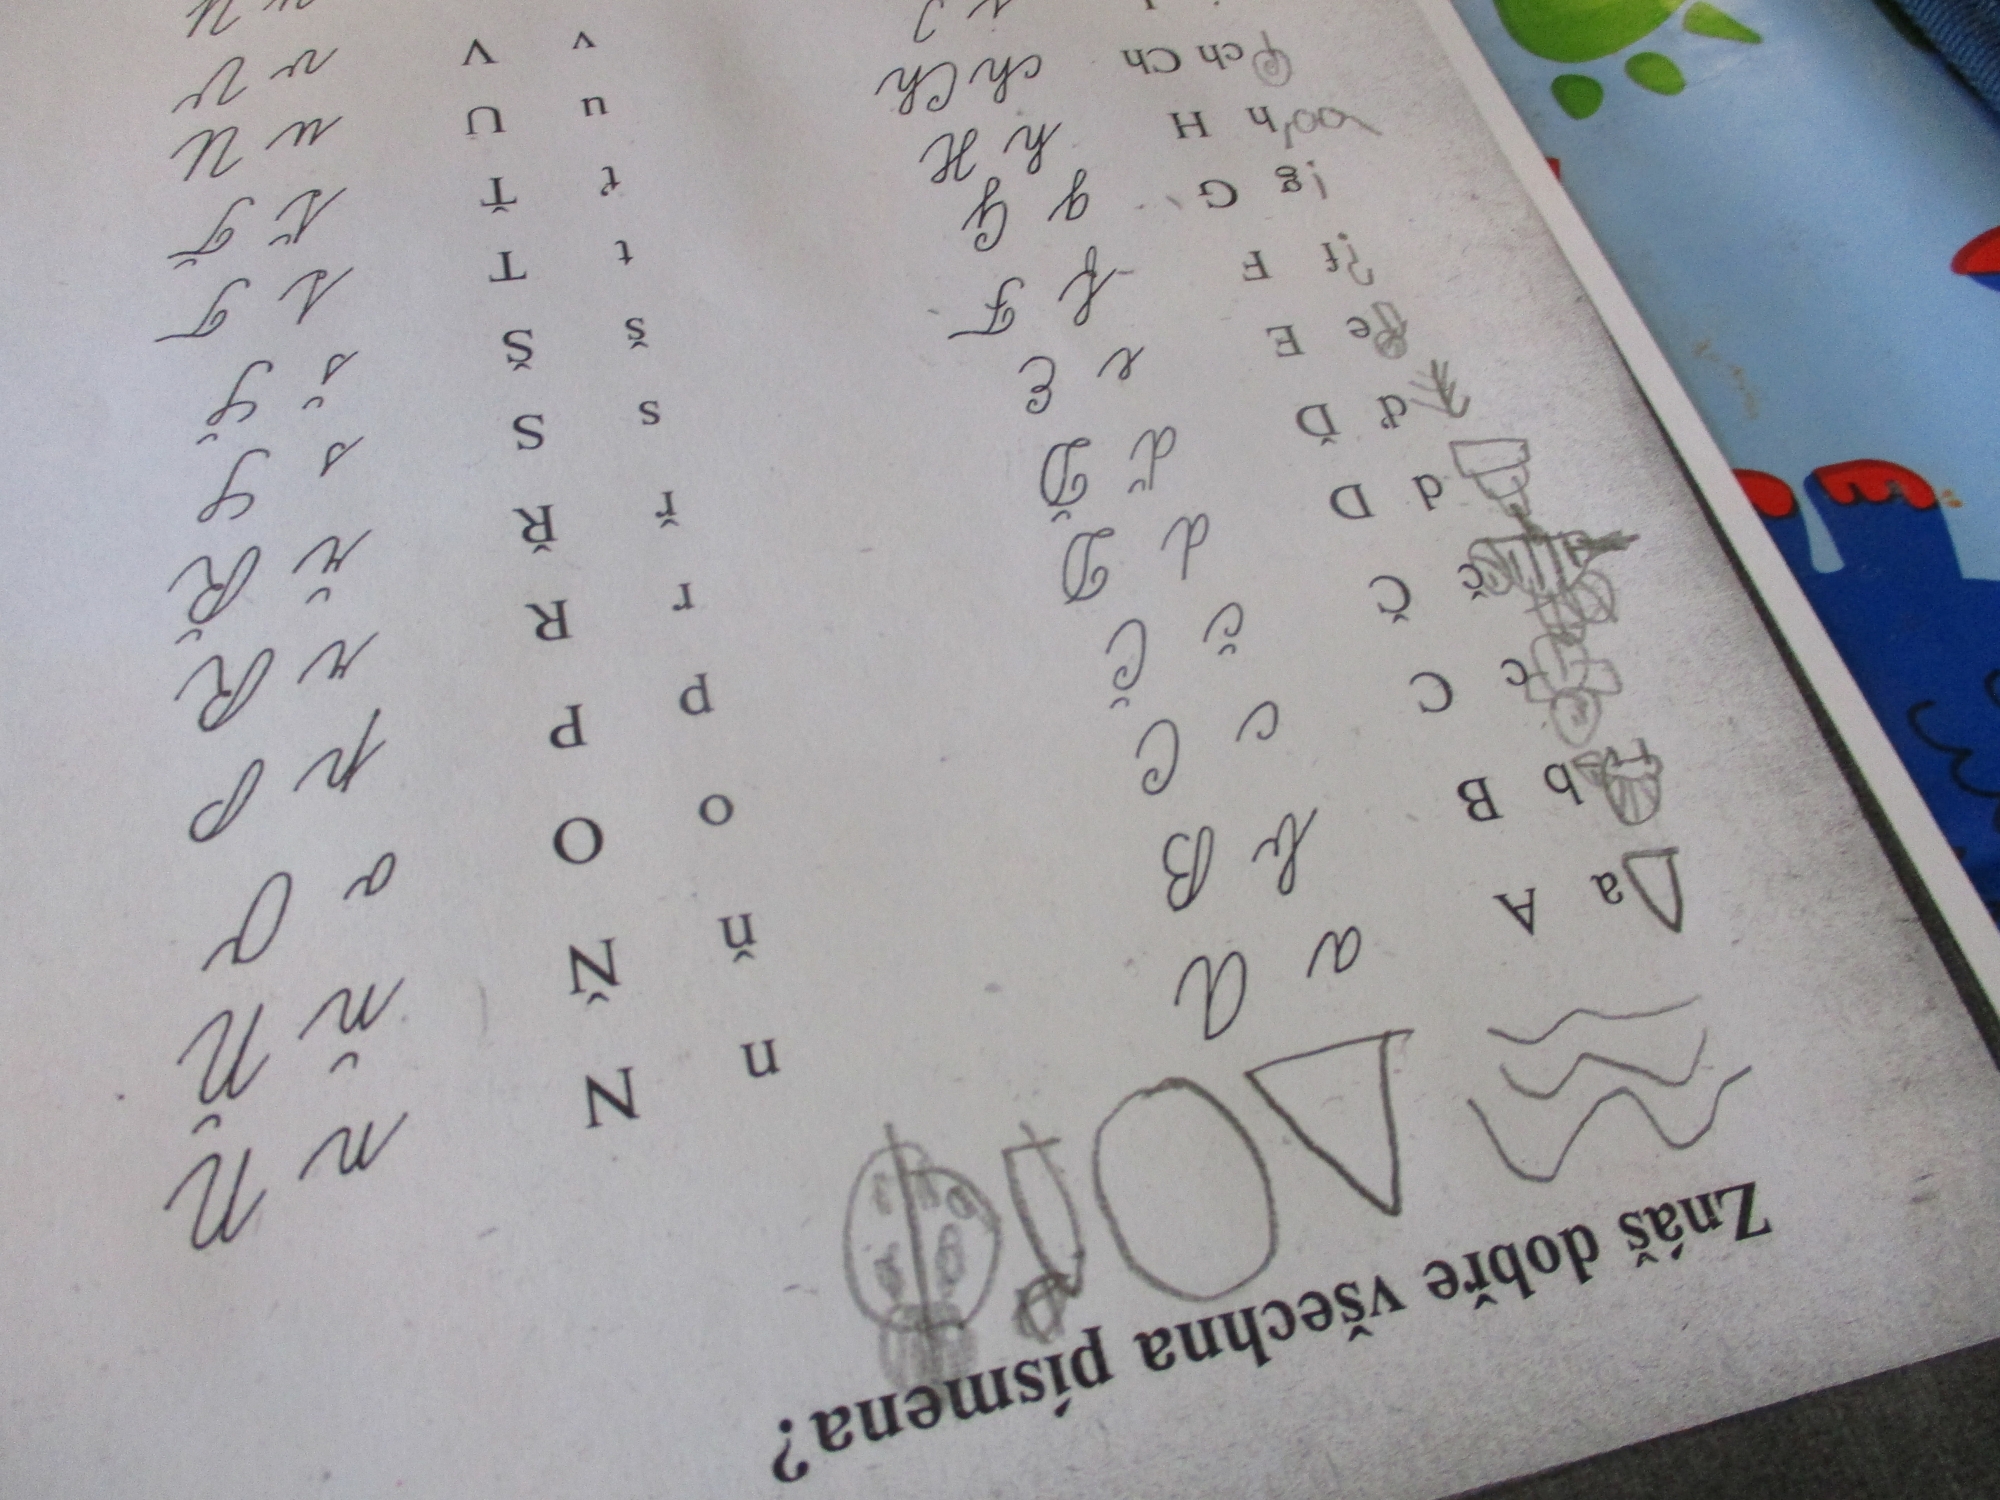 Znáš dobře všechna písmena?
a A a A
b B b B
c C c C
č Č č Č
d D d D
ď Ď ď Ď
e E e E
f F f F
g G g G
h H h H
ch Ch ch Ch
n N n N
ň Ň ň Ň
o O o O
p P p P
r R r R
ř Ř ř Ř
s S s S
š Š š Š
t T t T
ť Ť ť Ť
u U u U
v V v V